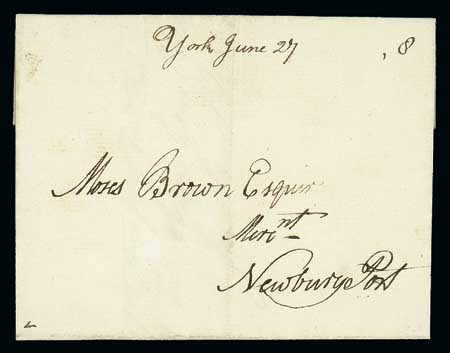 York June 27 , 8
Moses Brown Esquir
Merc nt
Newbury Port